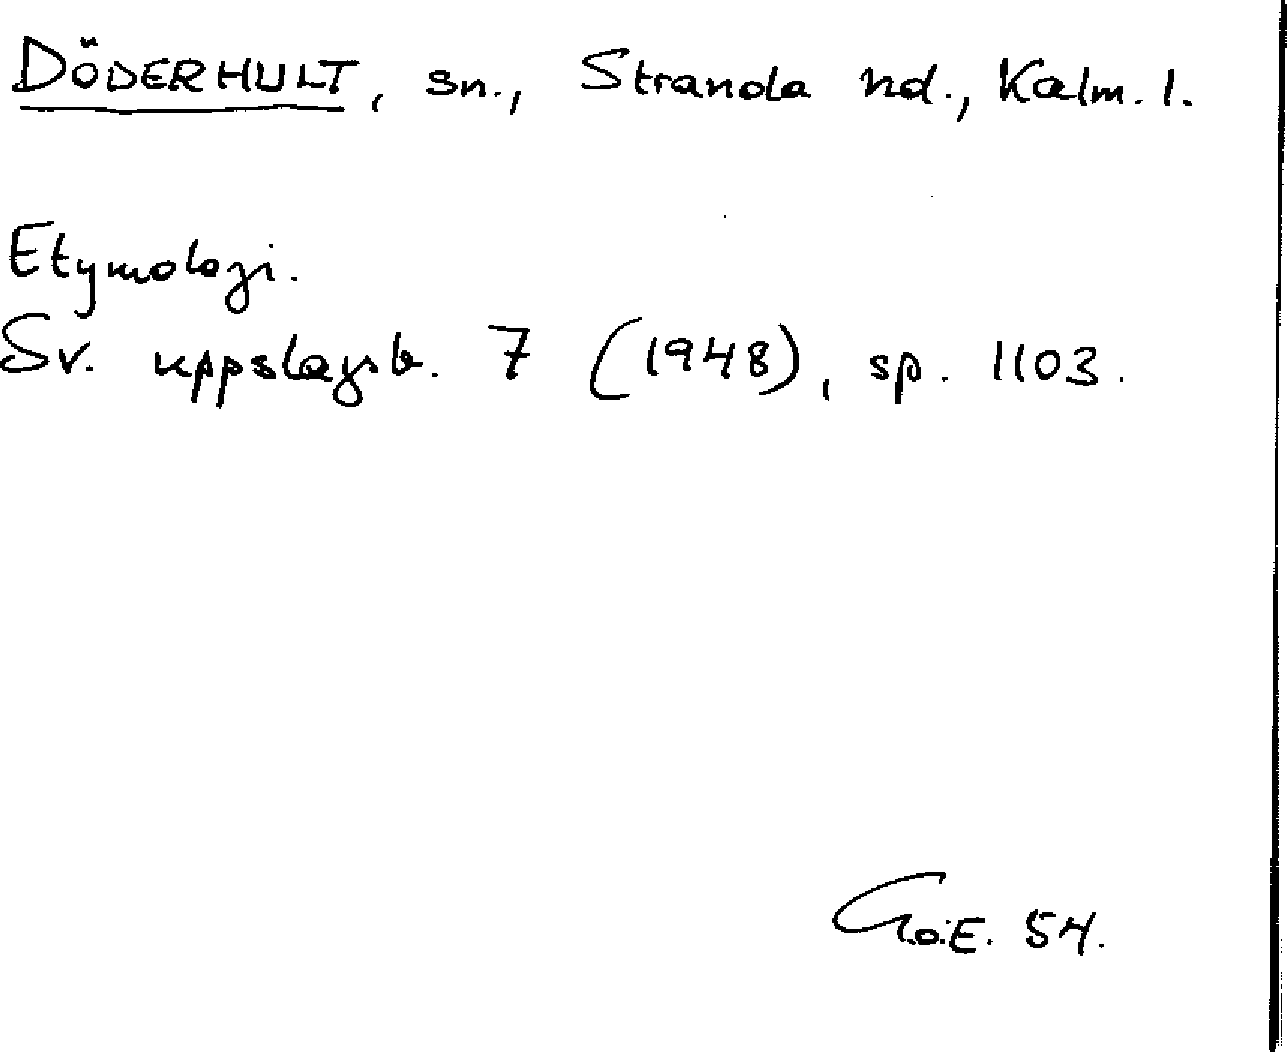 DÖDERHULT, sn., Stranda hd., Kalm. l.
Etymologi.
Sv. uppslagsb. 7 (1948), sp. 1103.
54.